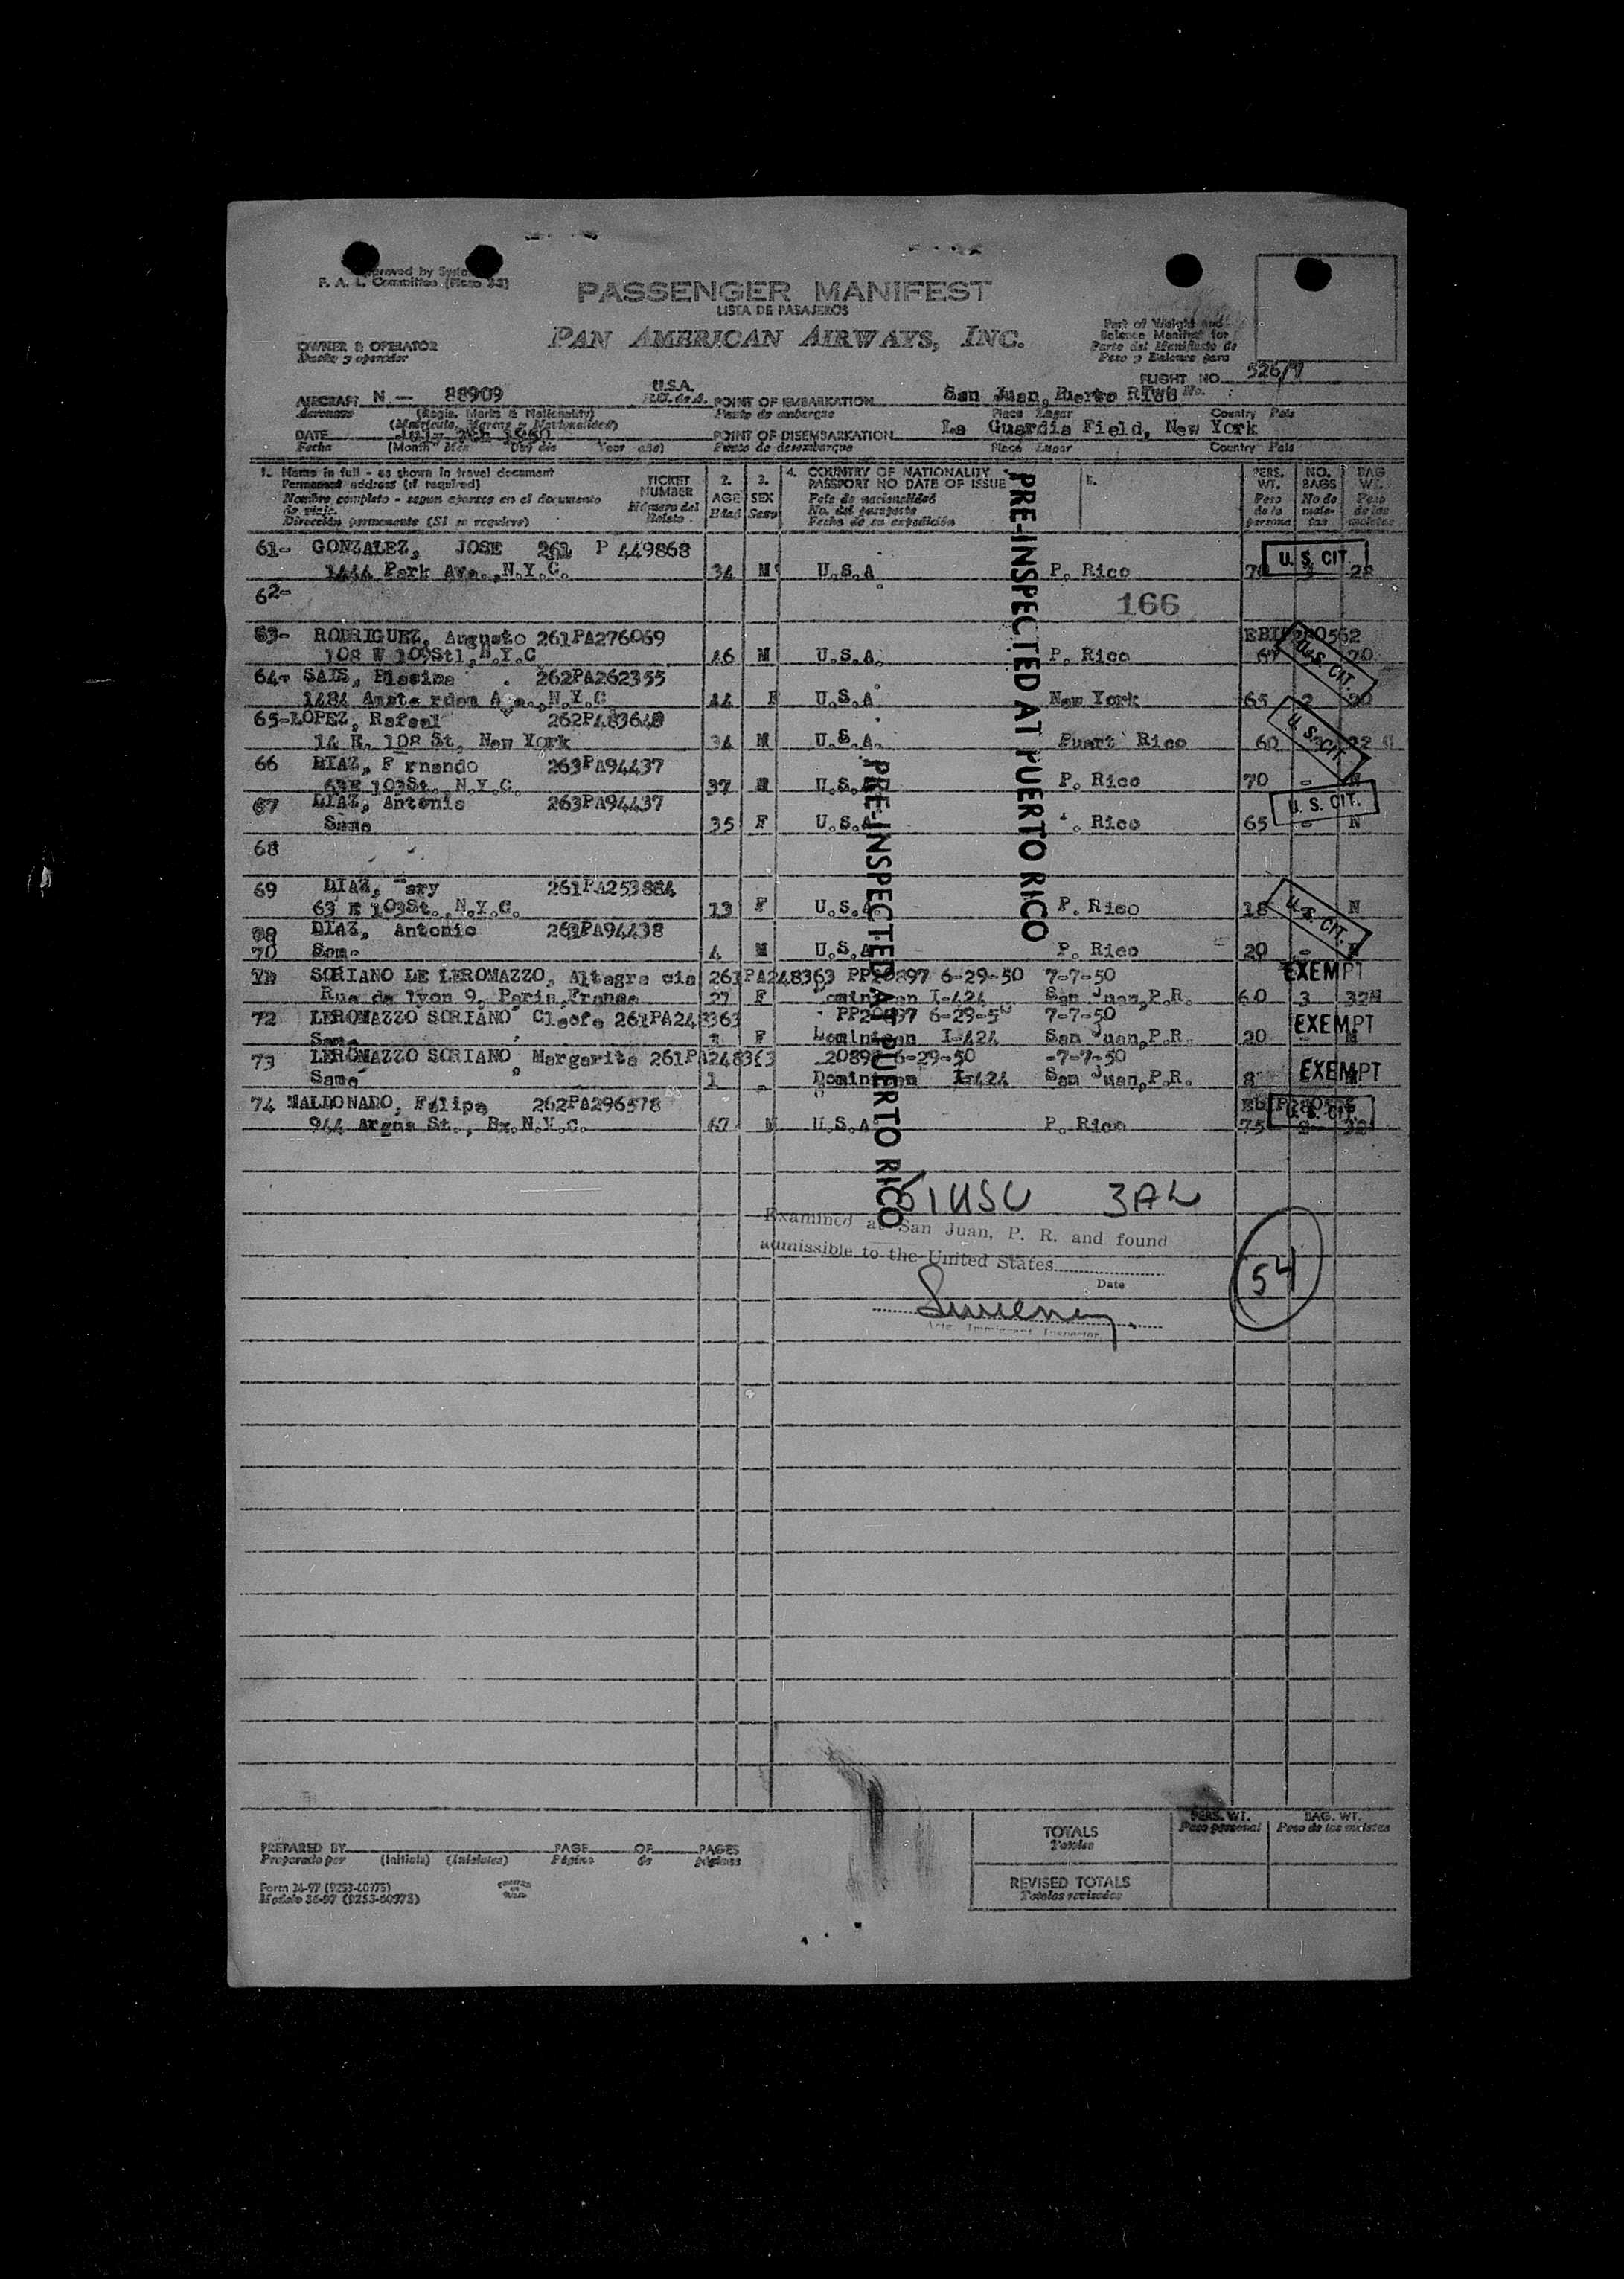 proved by System
F. A. L. Committee
PASSENGER MANIFEST
LISTA DE PASAJEROS
PAN AMERICAN AIRWAYS, INC.
OWNER & OPERATOR
Dueño y operador
Part of Weight and
Balance Manifest for
Parte del Manifiesto de
Peso y Balance para
FLIGHT NO. 526/7
AIRCRAFT N - 88909 U.S.A. POINT OF EMBARKATION San Juan, Puerto Rico
Aeronave (Regis. Marks & Nationality) E.U. de A. Punto de embarque Place Lugar Country País
(Matrícula, Marcas y Nacionalidad)
DATE July 7th 1950 POINT OF DISEMBARKATION La Guardia Field, New York
Fecha (Month Mes Day día Year año) Punto de desembarque Place Lugar Country País
1. Name in full - as shown in travel document
Permanent address (if required)
Nombre completo - segun aparece en el documento
de viaje.
Dirección permanente (Si se requiere)
TICKET
NUMBER
Número del
Boleto
2.
AGE
Edad
3.
SEX
Sexo
4. COUNTRY OF NATIONALITY
PASSPORT NO DATE OF ISSUE
País de nacionalidad
No. del pasaporte
Fecha de su expedición
5.
PERS.
WT.
Peso
de la
persona
NO.
BAGS
No de
male-
tas
BAG
WT.
Peso
de las
maletas
PRE-INSPECTED AT PUERTO RICO
PRE-INSPECTED AT PUERTO RICO
61- GONZALEZ, JOSE 261 P 449868
1444 Park Ave., N.Y.C. 34 M U.S.A P. Rico U. S. CIT. 28
62-
166
63- RODRIGUEZ, Augusto 261PA276069
108 W 109St, N.Y.C 46 M U.S.A. P. Rico 70 U. S. CIT.
64- SAIS, 262PA262355
1484 N.Y.C 44 F U.S.A New York 65 2
65-LOPEZ, Rafael 262P483648
14 E. 108 St, New York 34 M U.S.A. Puert Rico 60 22 U. S. CIT.
66 DIAZ, F rnando 263PA94437
63E 103St., N.Y.C. 37 M U.S.A P. Rico 70 - N
67 DIAZ, Antonia 263PA94437
Same 35 F U.S.A . Rico 65 - N U. S. CIT.
68
69 DIAZ, ary 261PA253884
63 E 103St., N.Y.C. 13 F U.S.A P. Rico N U. S. CIT.
DIAZ, Antonio 261PA94438
70 Same 4 M U.S.A P. Rico 20 -
SORIANO DE LEROMAZZO, Altagra cia 261PA248363 6-29-50 7-7-50 EXEMPT
Rue de lyon 9, Paris,France 27 F ominican I-424 San Juan,P.R. 60 3 32N
72 LEROMAZZO SORIANO Cleofe 7-7-50 EXEMPT
Same F Dominican I-424 San Juan,P.R. 20
73 LEROMAZZO SORIANO Margarita 261PA248363 6-29-50 -7-7-50
Same 1 Dominican I-424 San Juan,P.R. 8 EXEMPT
74 MALDONADO, Felipe 262PA296578
944 St., Bx.N.Y.C. 67 M U.S.A P. Rico 75 U. S. CIT.
61USC 3AL
Examined at San Juan, P. R. and found
admissible to the United States
Date
54
Immigrant Inspector
TOTALS
Totales
PERS. WT.
Peso personal
BAG. WT.
Peso de las maletas
PREPARED BY PAGE OF PAGES
Preparado por (Initials) (Iniciales) Página de páginas
REVISED TOTALS
Totales revisados
Form 36-97 (9253-60973)
Modelo 36-97 (9253-60973)